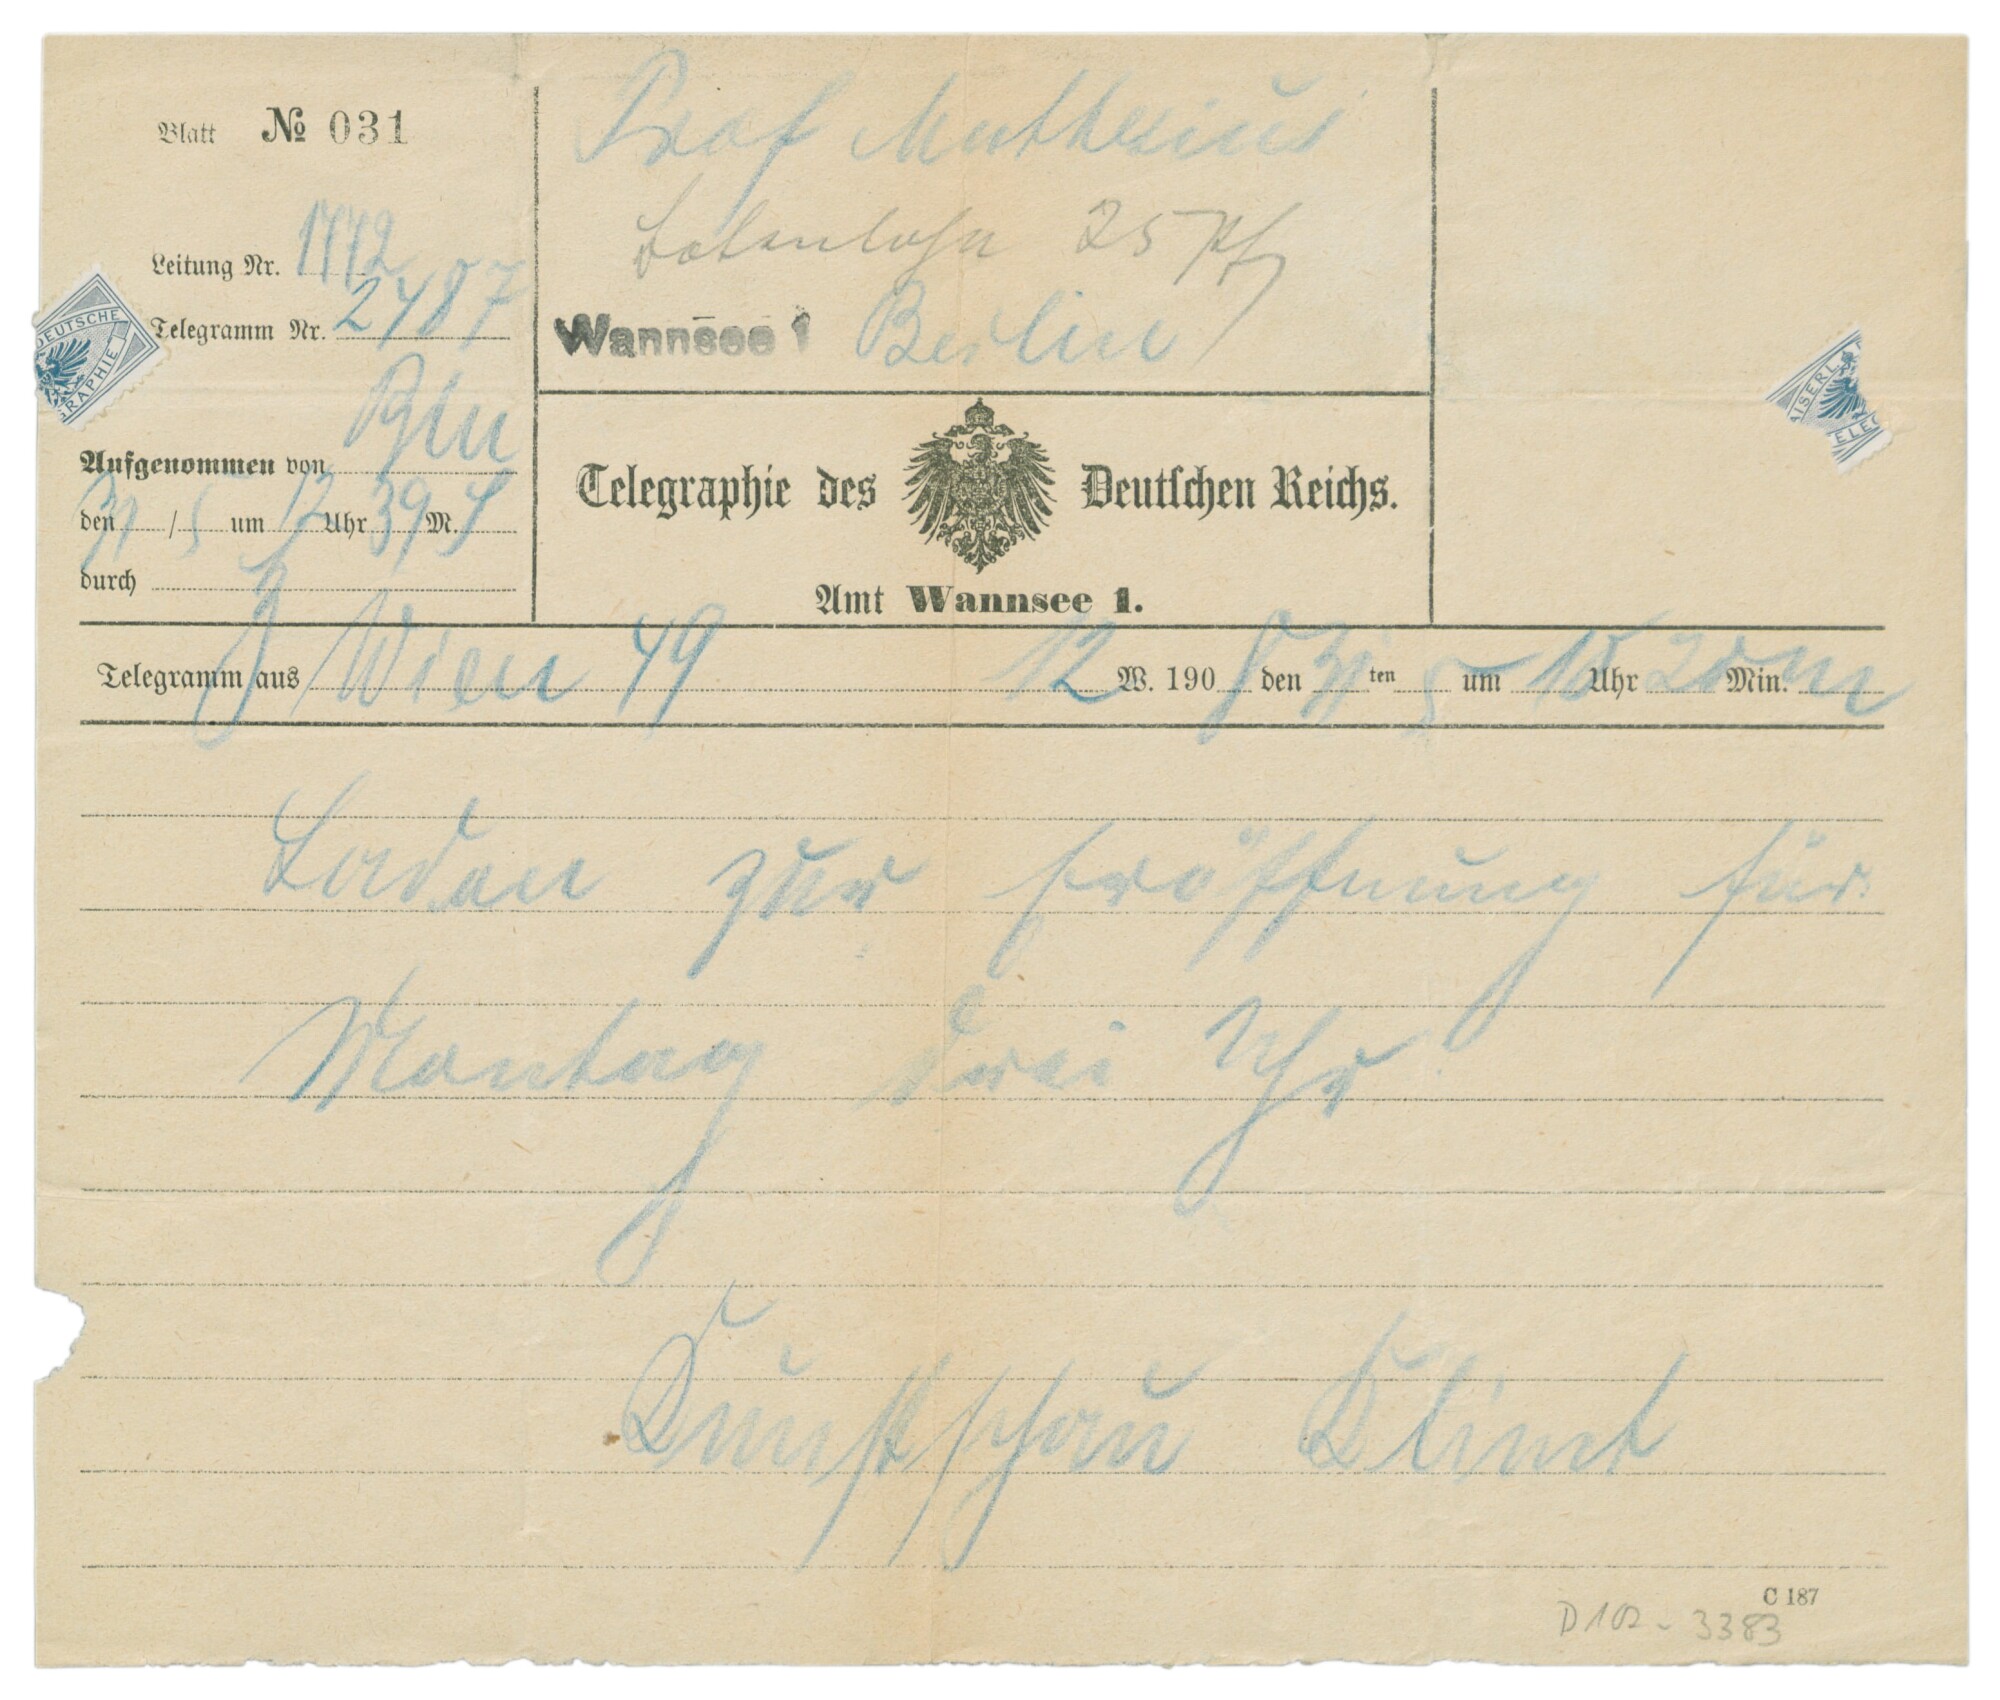 Blatt № 031
Leitung Nr. 1772
Telegramm Nr. 2487
Aufgenommen von Bln
den 31/5 um 12 Uhr 39 M. S
durch
Prof Muthesius
Botenlohn 25 Pfg
Wannsee 1 Berlin
Telegraphie des Deutschen Reichs.
Amt Wannsee 1.
DEUTSCHE
GRAPHIE
AISERL
ELEG
Telegramm aus Wien 49 12 W. 190 8 den 31 ten 5 um 10 Uhr 20 Min. m
Laden zur Eröffnung für
Montag drei Uhr
Kunstschau Klimt
C 187
D 102 - 3383